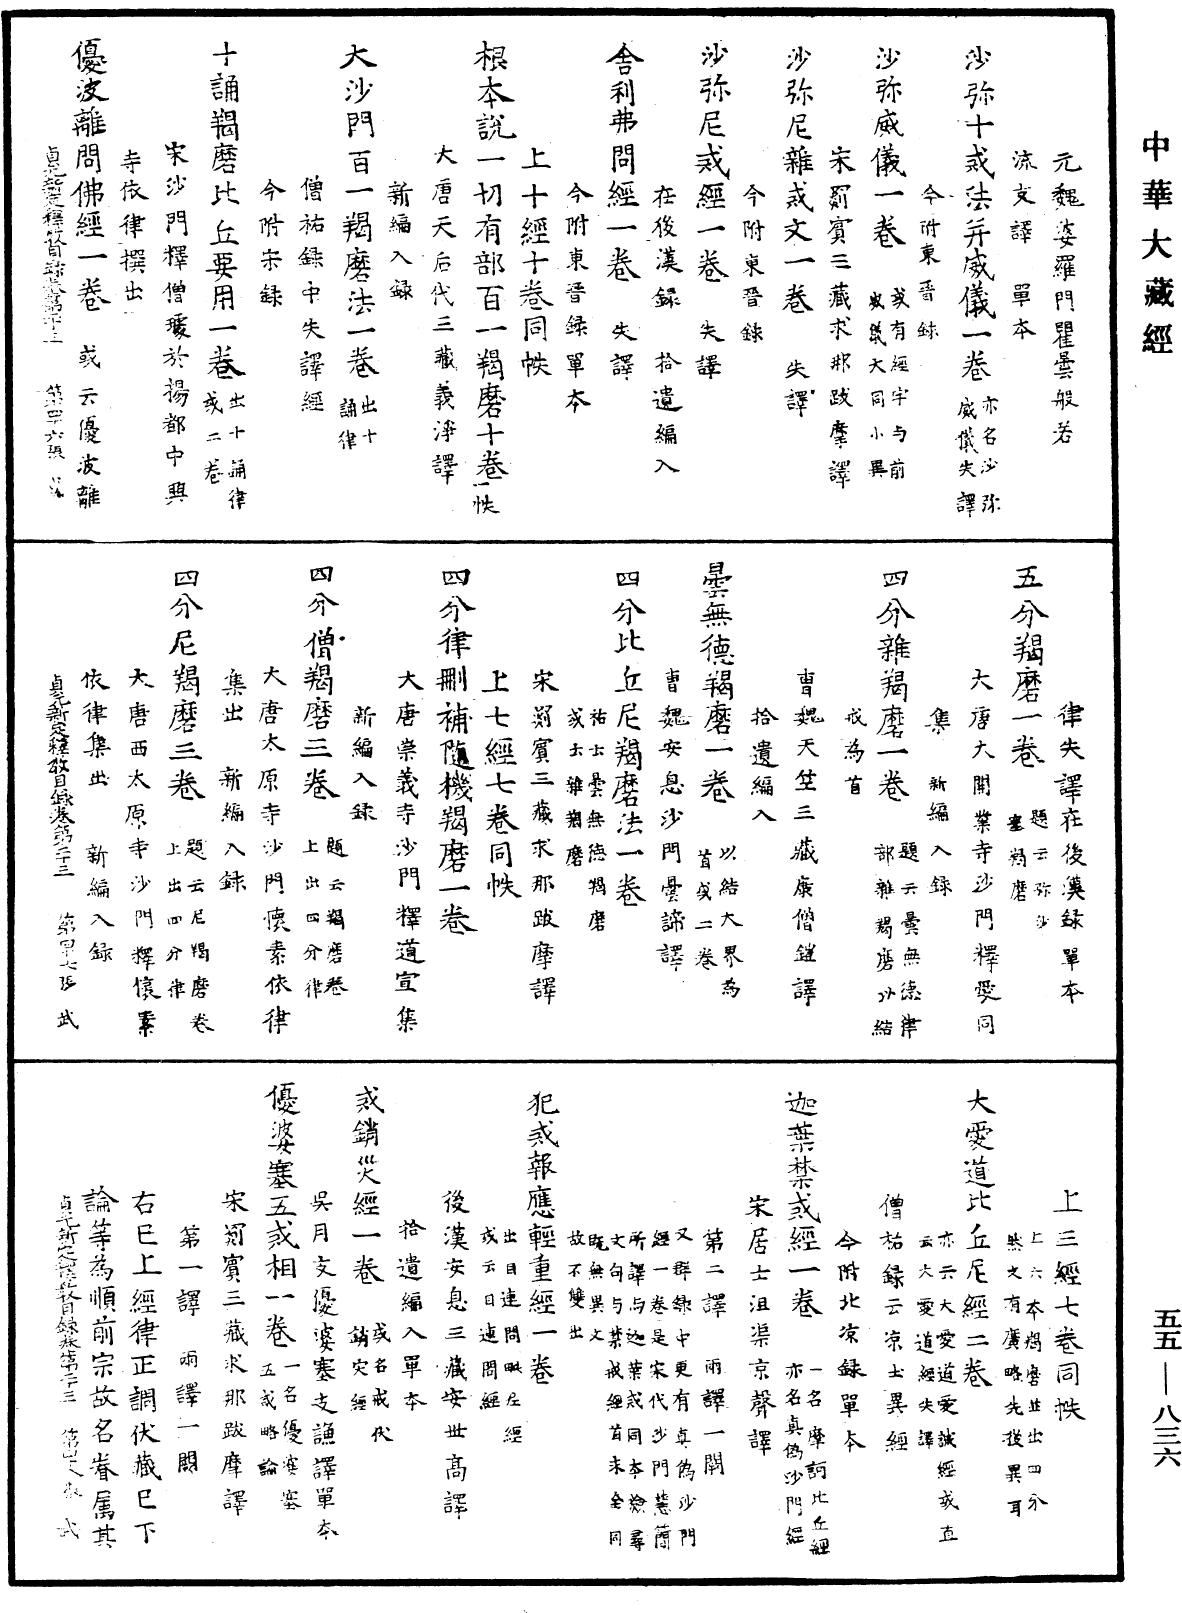 中華大藏經
元魏婆羅門瞿曇般若
流支譯　單本
沙弥十戒法并威儀一卷 亦名沙弥威儀失譯
今附東晉録
沙弥威儀一卷 或有經字与前威儀大同小異
宋罽賓三藏求那跋摩譯
沙弥尼雜戒文一卷　失譯
今附東晉録
沙弥尼戒經一卷　失譯
在後漢録　拾遺編入
舎利弗問經一卷　失譯
今附東晉録單本
上十經十卷同帙
根本說一切有部百一羯磨十卷 一帙
大唐天后代三藏義淨譯
新編入録
大沙門百一羯磨法一卷 出十誦律
僧祐録中失譯經
今附宋録
十誦羯磨比丘要用一卷 出十誦律或二卷
宋沙門釋僧璩於揚都中興
寺依律撰出
優波離問佛經一卷　或云優波離
貞元新定釋教目録卷第二十三　第四十六張
律失譯在後漢録單本
五分羯磨一卷 題云弥沙塞羯磨
大唐大開業寺沙門釋愛同
集　新編入録
四分雜羯磨一卷 題云曇無德律部雜羯磨以結
戒為首
曹魏天竺三藏康僧鎧譯
拾遺編入
曇無德羯磨一卷 以結大界為首或二卷
曹魏安息沙門曇諦譯
四分比丘尼羯磨法一卷
祐云曇無德羯磨或云雜羯磨
宋罽賓三藏求那跋摩譯
上七經七卷同帙
四分律刪補隨機羯磨一卷
大唐崇義寺沙門釋道宣集
新編入録
四分僧羯磨三卷 題云羯磨卷上出四分律
大唐太原寺沙門懷素依律
集出　新編入録
四分尼羯磨三卷 題云尼羯磨卷上出四分律
大唐西太原寺沙門釋懷素
依律集出　新編入録
貞元新定釋教目録卷第二十三　第四十七張　武
上三經七卷同帙
上六本羯磨並出四分然文有廣略先後異耳
大愛道比丘尼經二卷
亦云大愛道受誡經或直云大愛道經失譯
僧祐録云涼土異經
今附北涼録單本
迦葉禁戒經一卷 一名摩訶比丘經亦名真偽沙門經
宋居士沮渠京聲譯
第二譯　兩譯一闕
又群録中更有真偽沙門經一卷是宋代沙門慧簡所譯与迦葉戒同本撿尋文句与禁戒經首末全同旣無異文故不雙出
犯戒報應輕重經一卷
出目連問毗尼經或云目連問經
後漢安息三藏安世高譯
拾遺編入單本
戒銷災經一卷 或名戒伐銷灾經
吳月支優婆塞支謙譯單本
優婆塞五戒相一卷 一名優婆塞五戒略論
宋罽賓三藏求那跋摩譯
第一譯　兩譯一闕
右巳上經律正調伏藏巳下
論等為順前宗故名眷属其
貞元新定釋教目録卷第二十三　第四十八張　武
五五—八三六